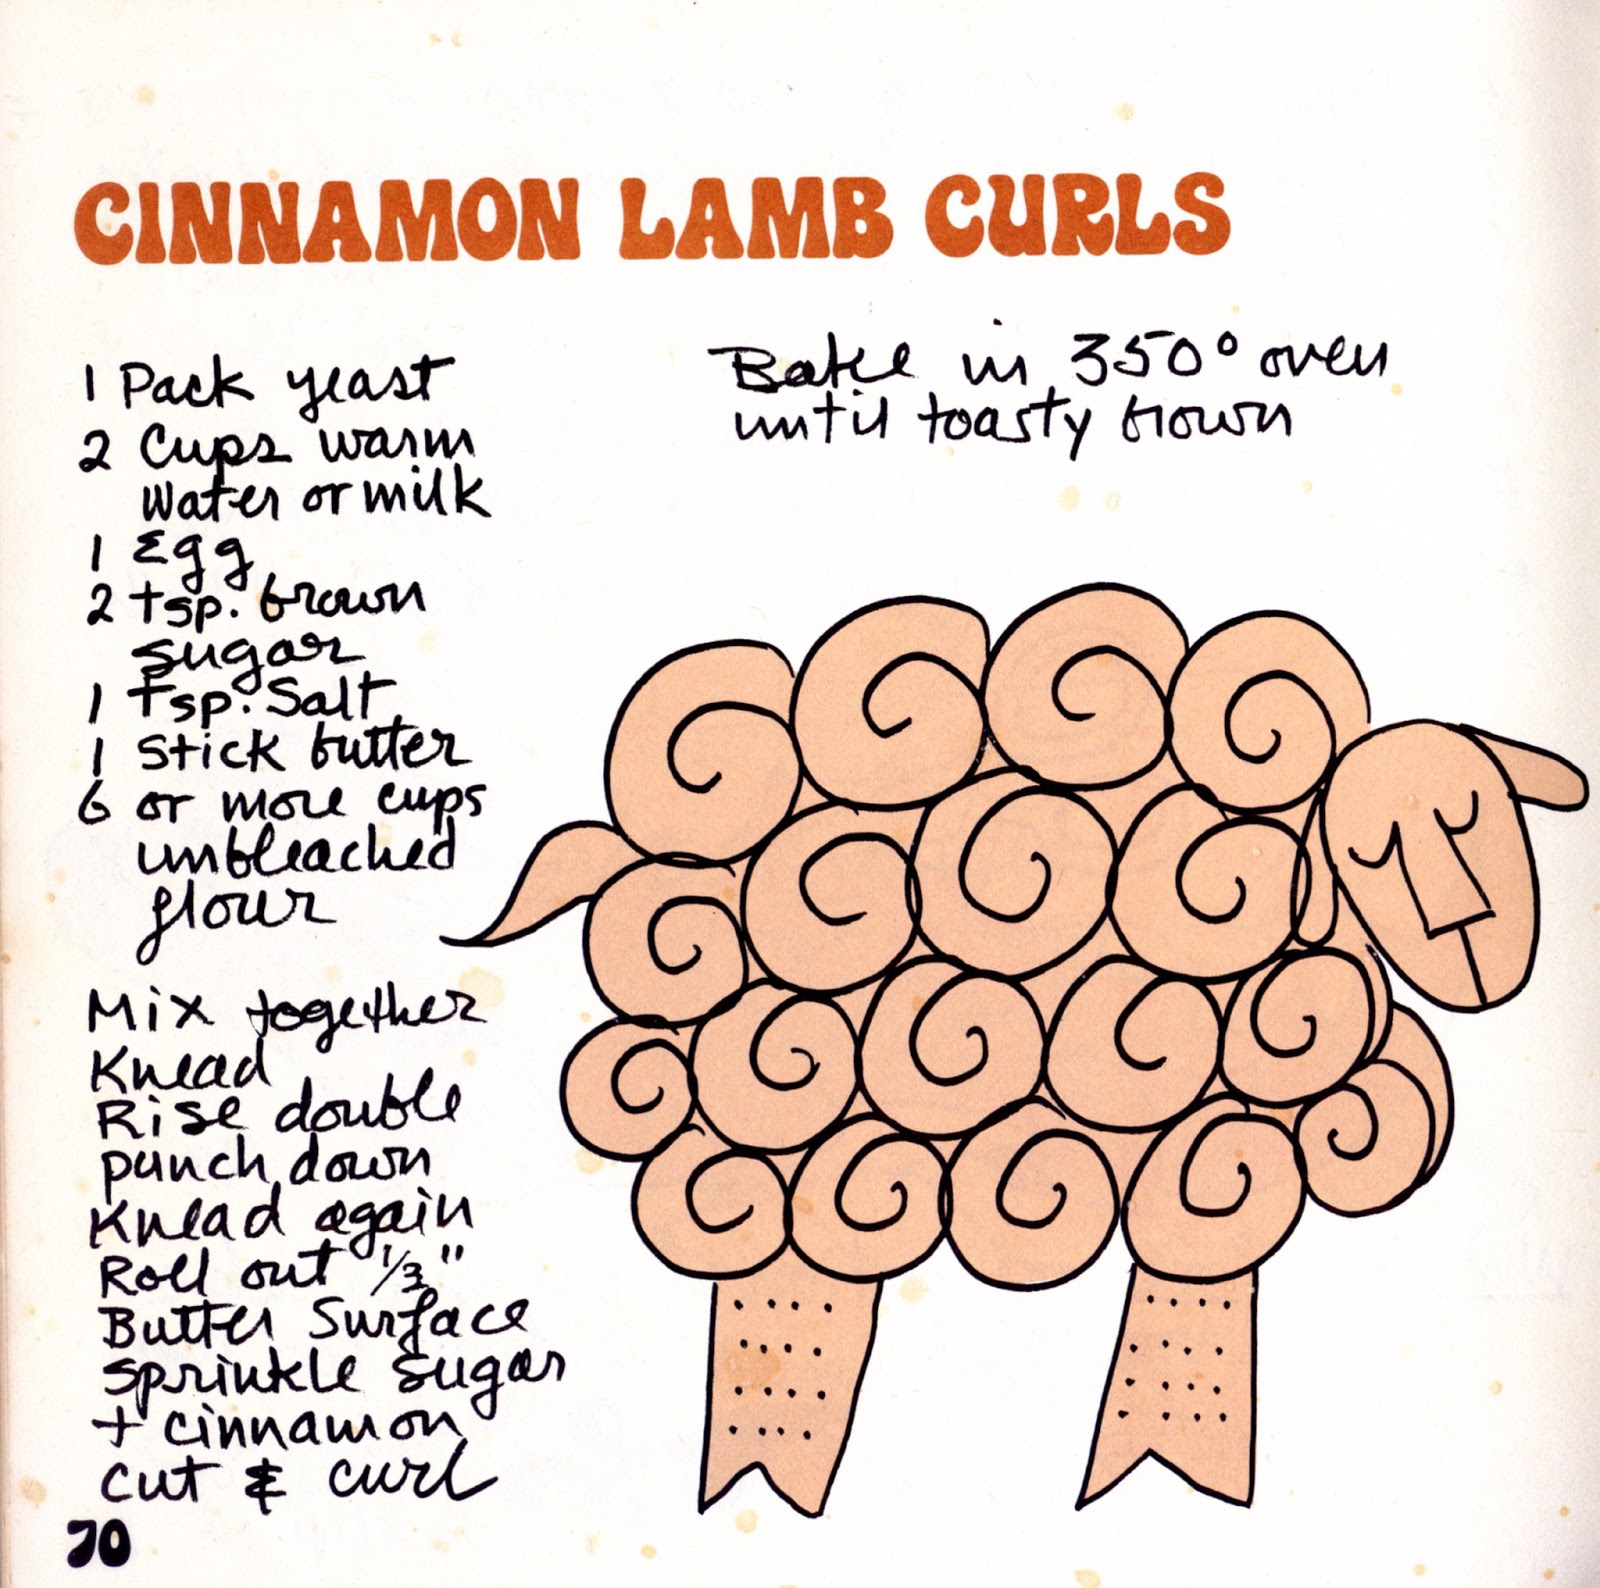 CINNAMON LAMB CURLS
1 Pack yeast
2 Cups warm
water or milk
1 Egg
2 tsp. brown
sugar
1 tsp. Salt
1 Stick butter
6 or more cups
unbleached
flour
Mix together
Knead
Rise double
punch down
Knead again
Roll out 1/3"
Butter Surface
sprinkle sugar
+ cinnamon
cut & curl
Bake in 350° oven
until toasty brown
70